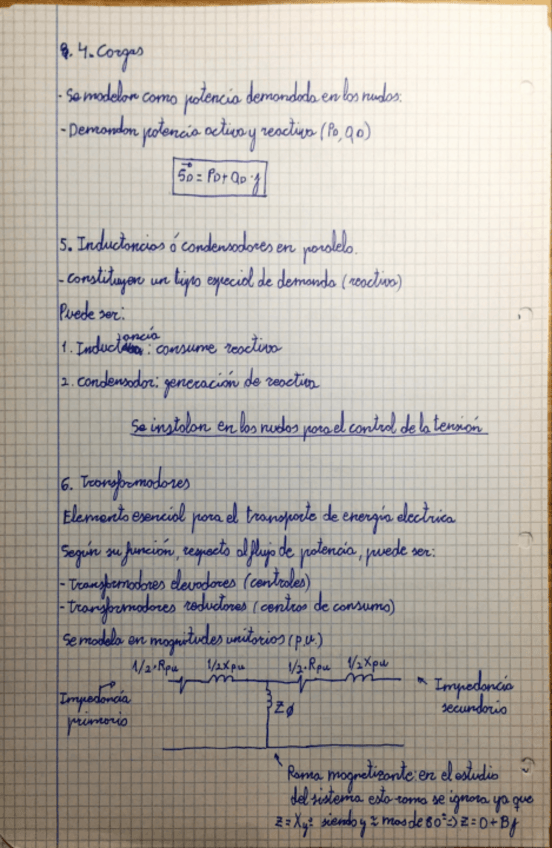 4. Cargas
- Se modelan como potencia demandada en los nudos.
- Demandan potencia activa y reactiva (PD, QD)
SD = PD + QD · j
5. Inductancias ó condensadores en paralelo.
- constituyen un tipo especial de demanda (reactiva)
Puede ser:
1. Inductancia: consume reactiva
2. condensador: generación de reactiva
Se instalan en los nudos para el control de la tensión
6. Transformadores
Elemento esencial para el transporte de energía electrica
Según su función, respecto al flujo de potencia, puede ser:
- Transformadores elevadores (centrales)
- transformadores reductores (centros de consumo)
Se modela en magnitudes unitarias (p.u.)
1/2·Rpu 1/2Xpu 1/2·Rpu 1/2Xpu
Impedancia primario
Impedancia secundario
Zϕ
Rama magnetizante: en el estudio
del sistema esta rama se ignora ya que
siendo y mas de 80 => z = 0 + Bj